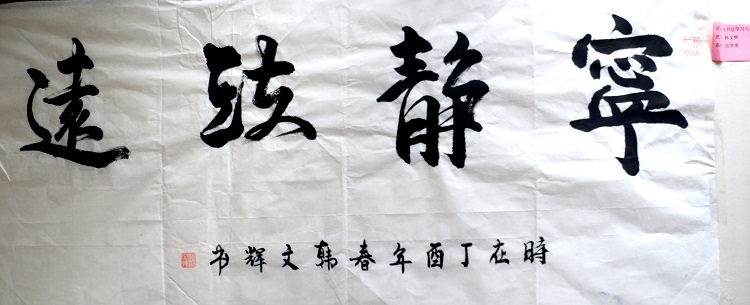 寧靜致遠
時在丁酉年春韩文辉书